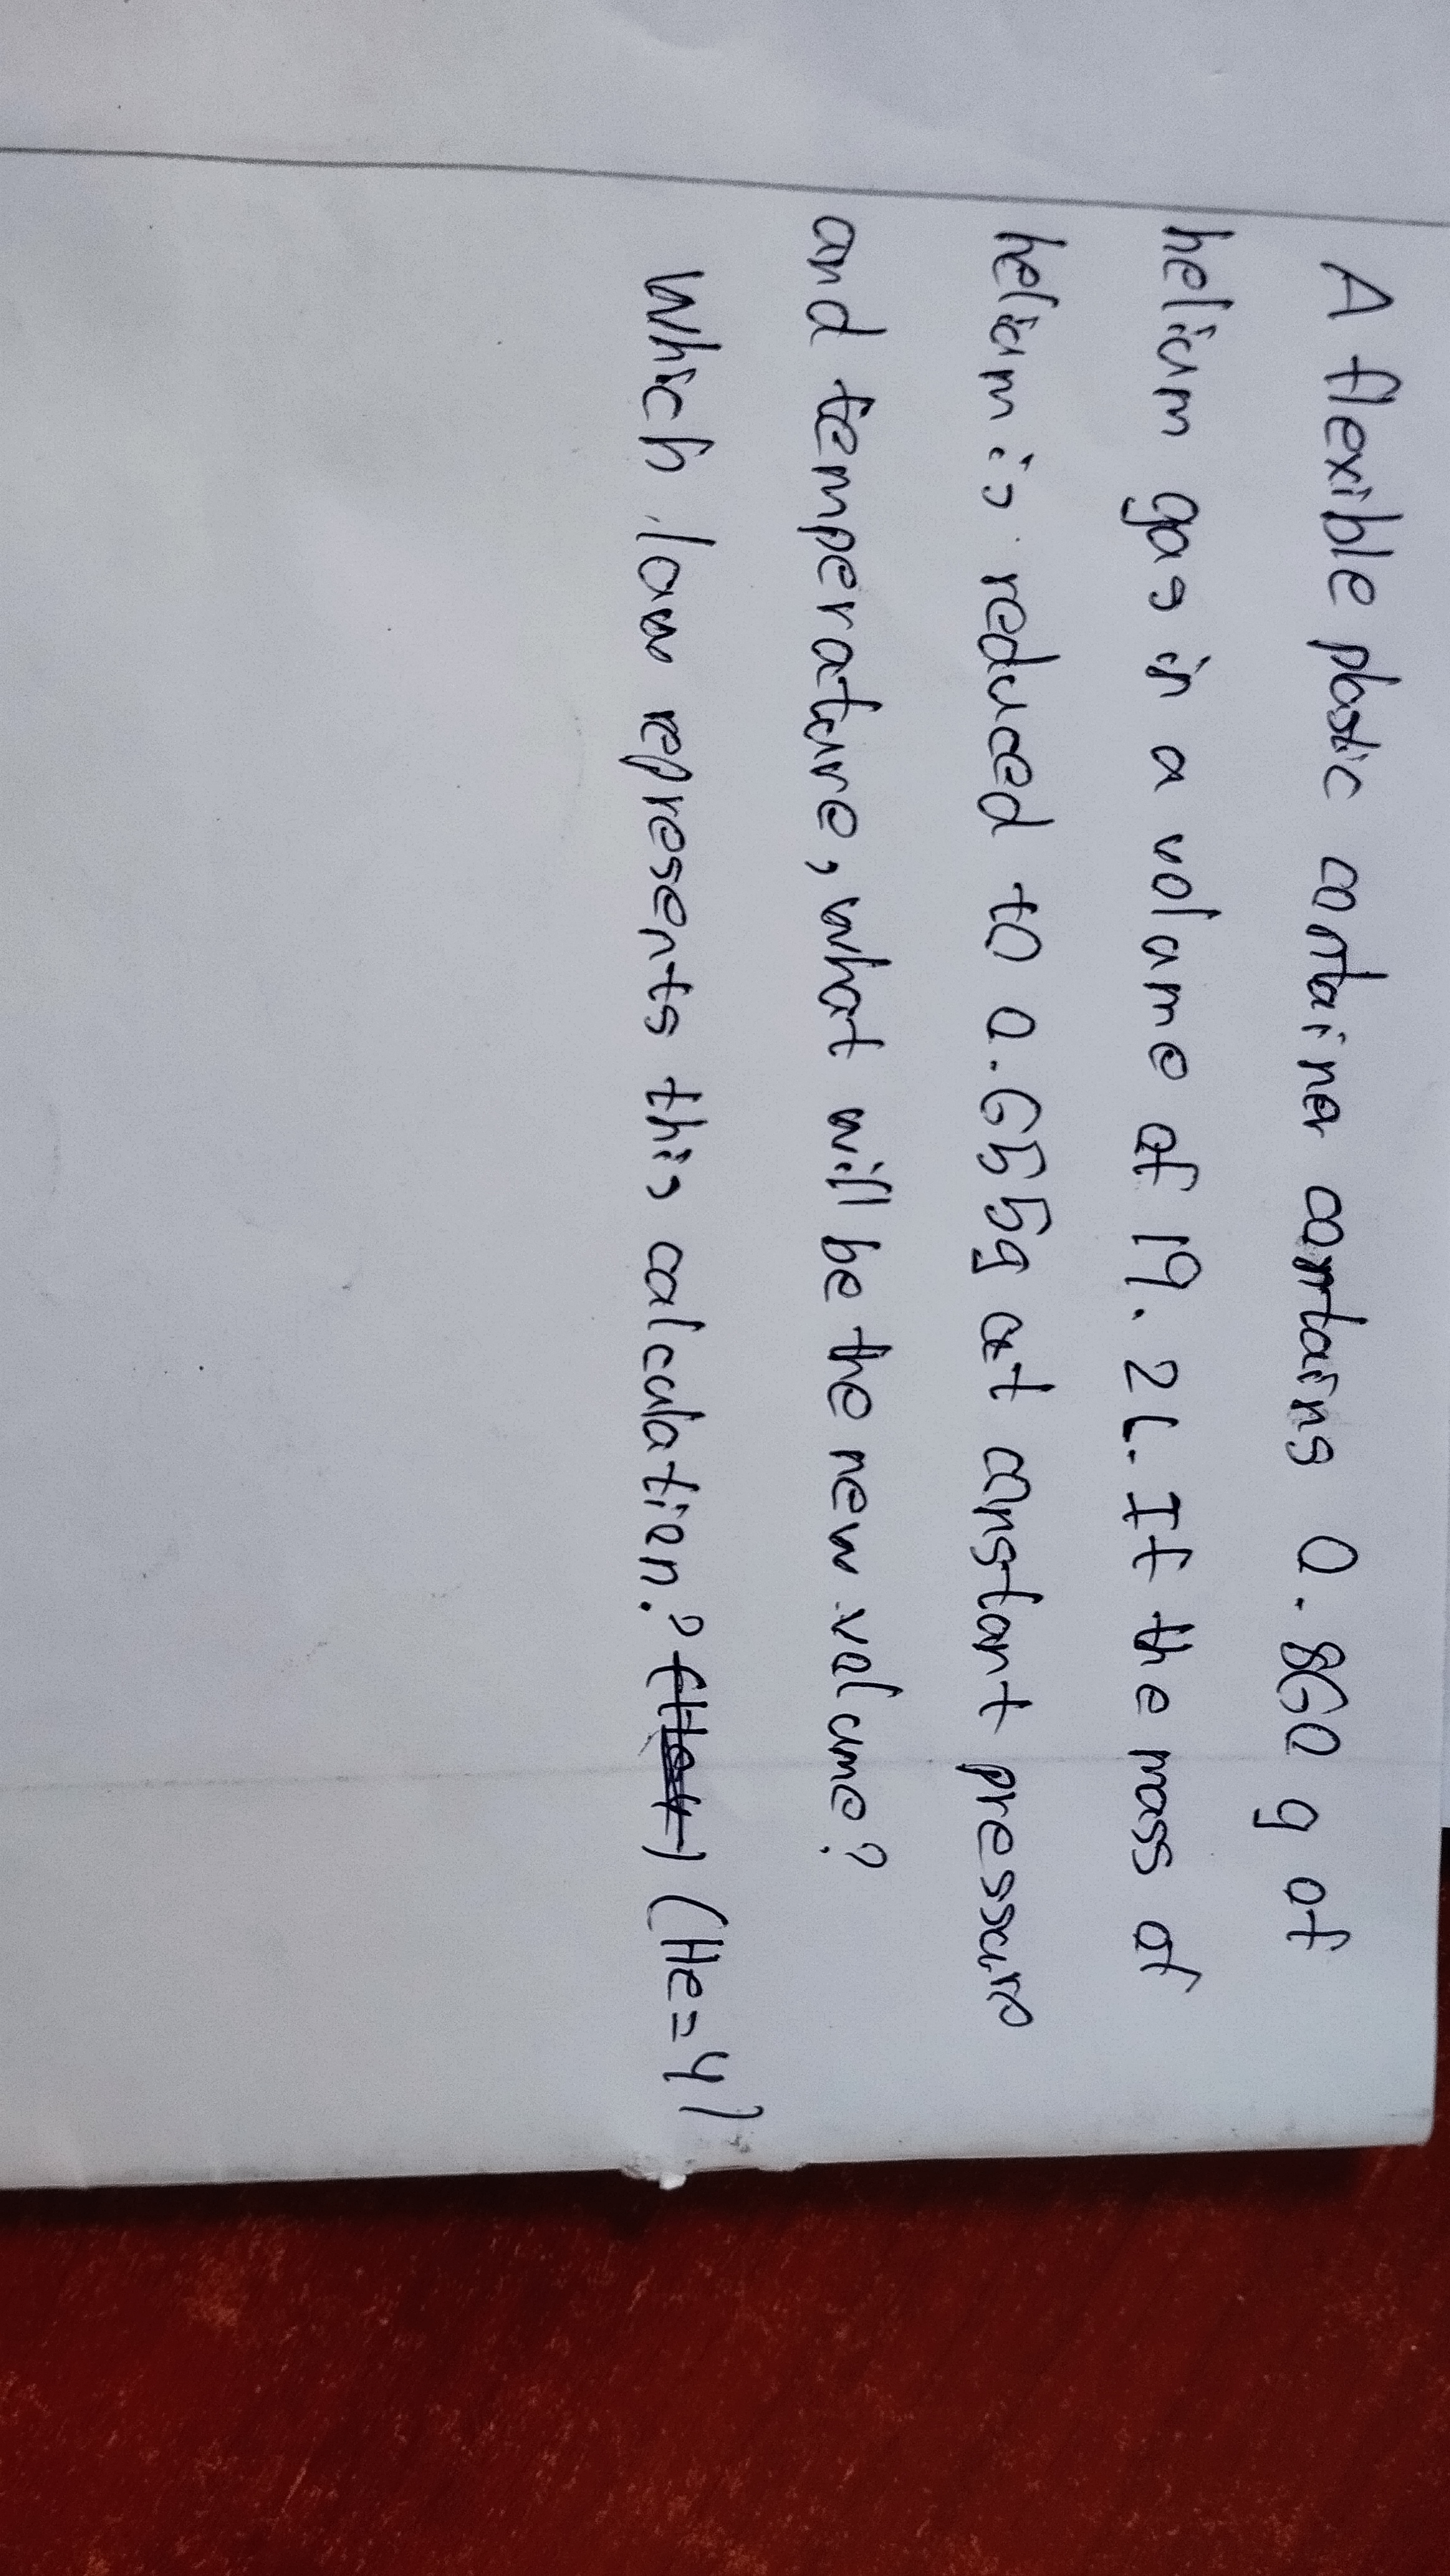 A flexible plastic container contains 0.860 g of
helium gas in a volume of 19.2L. If the mass of
helium is reduced to 0.655g at constant pressure
and temperature, what will be the new volume?
Which law represents this calculation? (He=4)